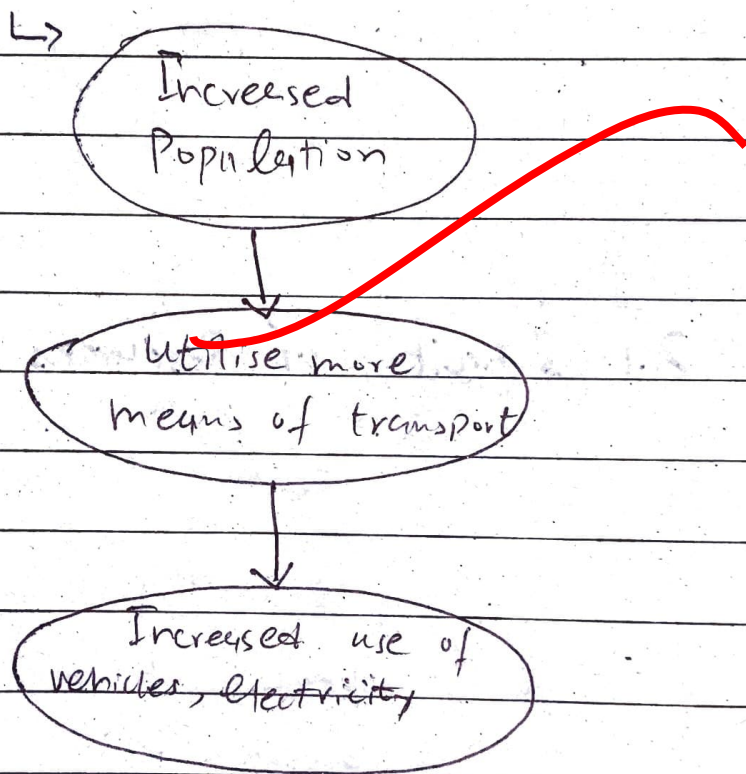 Increased
Population
Utilise more
means of transport
Increased use of
vehicles, electricity